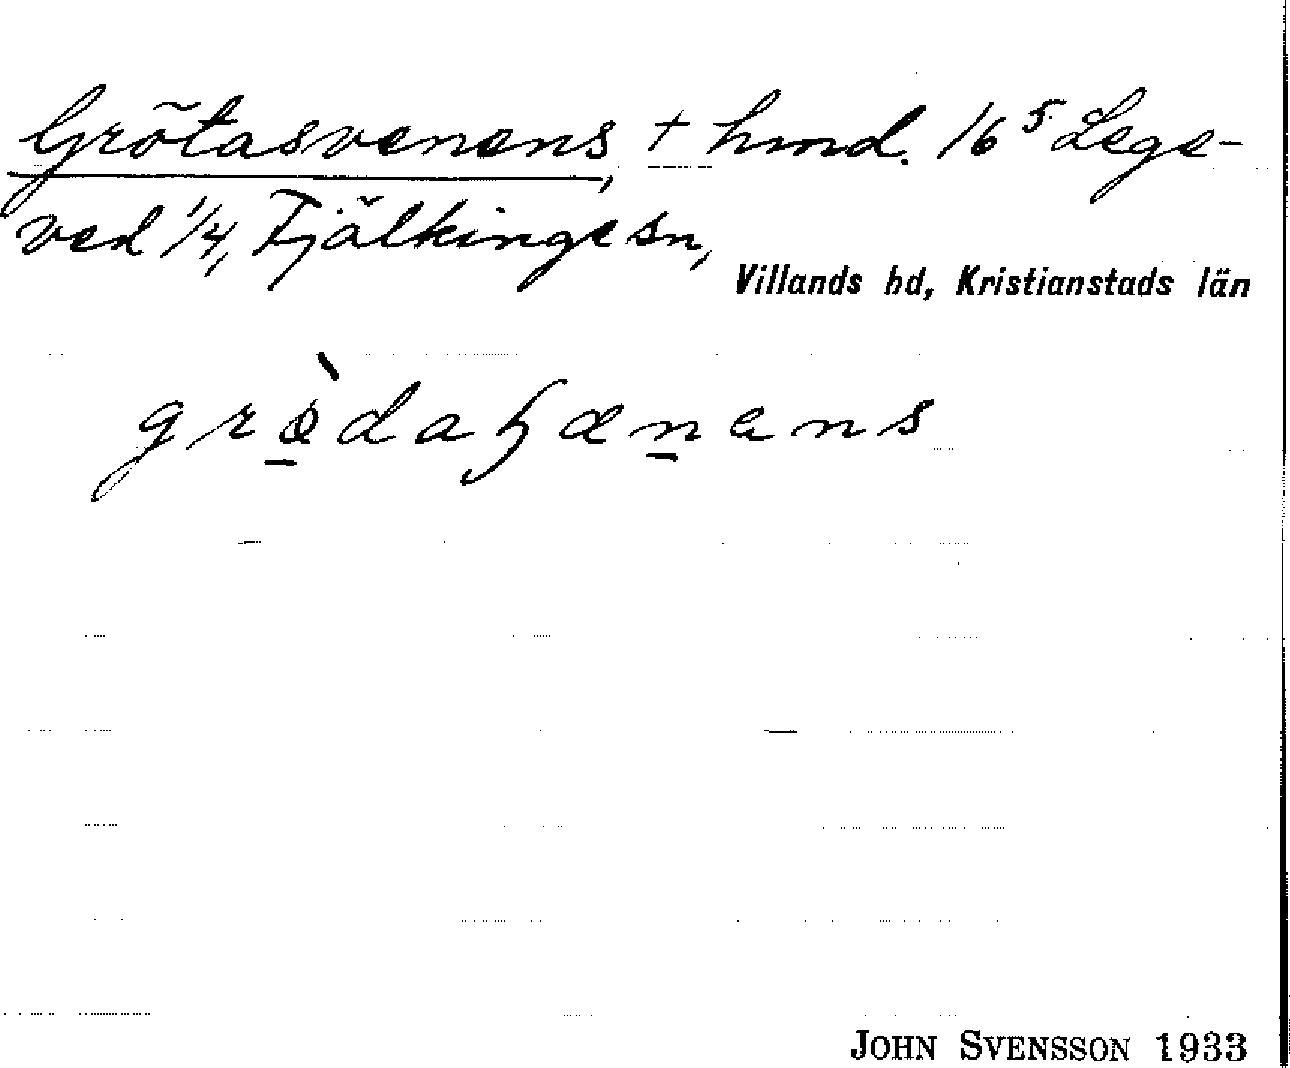 Grötasvenens, + hmd. 16⁵ Lege-
ved 1/4, Fjälkinge sn,
Villands hd, Kristianstads län
grø̱̀daɧæṉans
JOHN SVENSSON 1933